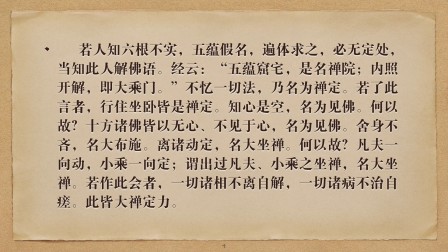 若人知六根不实，五蕴假名，遍体求之，必无定处，
当知此人解佛语。经云：“五蕴窟宅，是名禅院；内照
开解，即大乘门。”不忆一切法，乃名为禅定。若了此
言者，行住坐卧皆是禅定。知心是空，名为见佛。何以
故？十方诸佛皆以无心、不见于心，名为见佛。舍身不
吝，名大布施。离诸动定，名大坐禅。何以故？凡夫一
向动，小乘一向定；谓出过凡夫、小乘之坐禅，名大坐
禅。若作此会者，一切诸相不离自解，一切诸病不治自
瘥。此皆大禅定力。